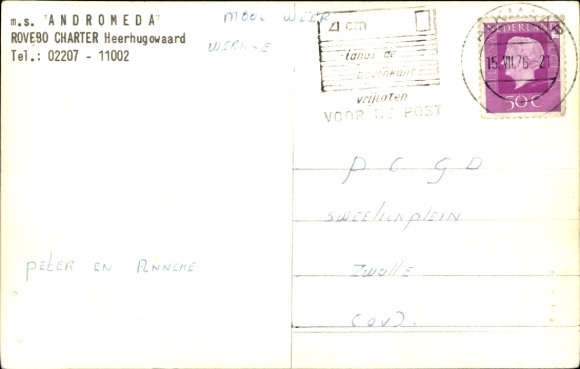 m.s. "ANDROMEDA"
ROVEBO CHARTER Heerhugowaard
Tel.: 02207 - 11002
MOOI WEER
peter en Anneke
4 cm
langs de
bovenkant
vrijlaten
VOOR DE POST
ALKMAAR
15.VII.76-21
NEDERLAND
50 C
P C G D
Sweelinkplein
Zwolle
(OV).